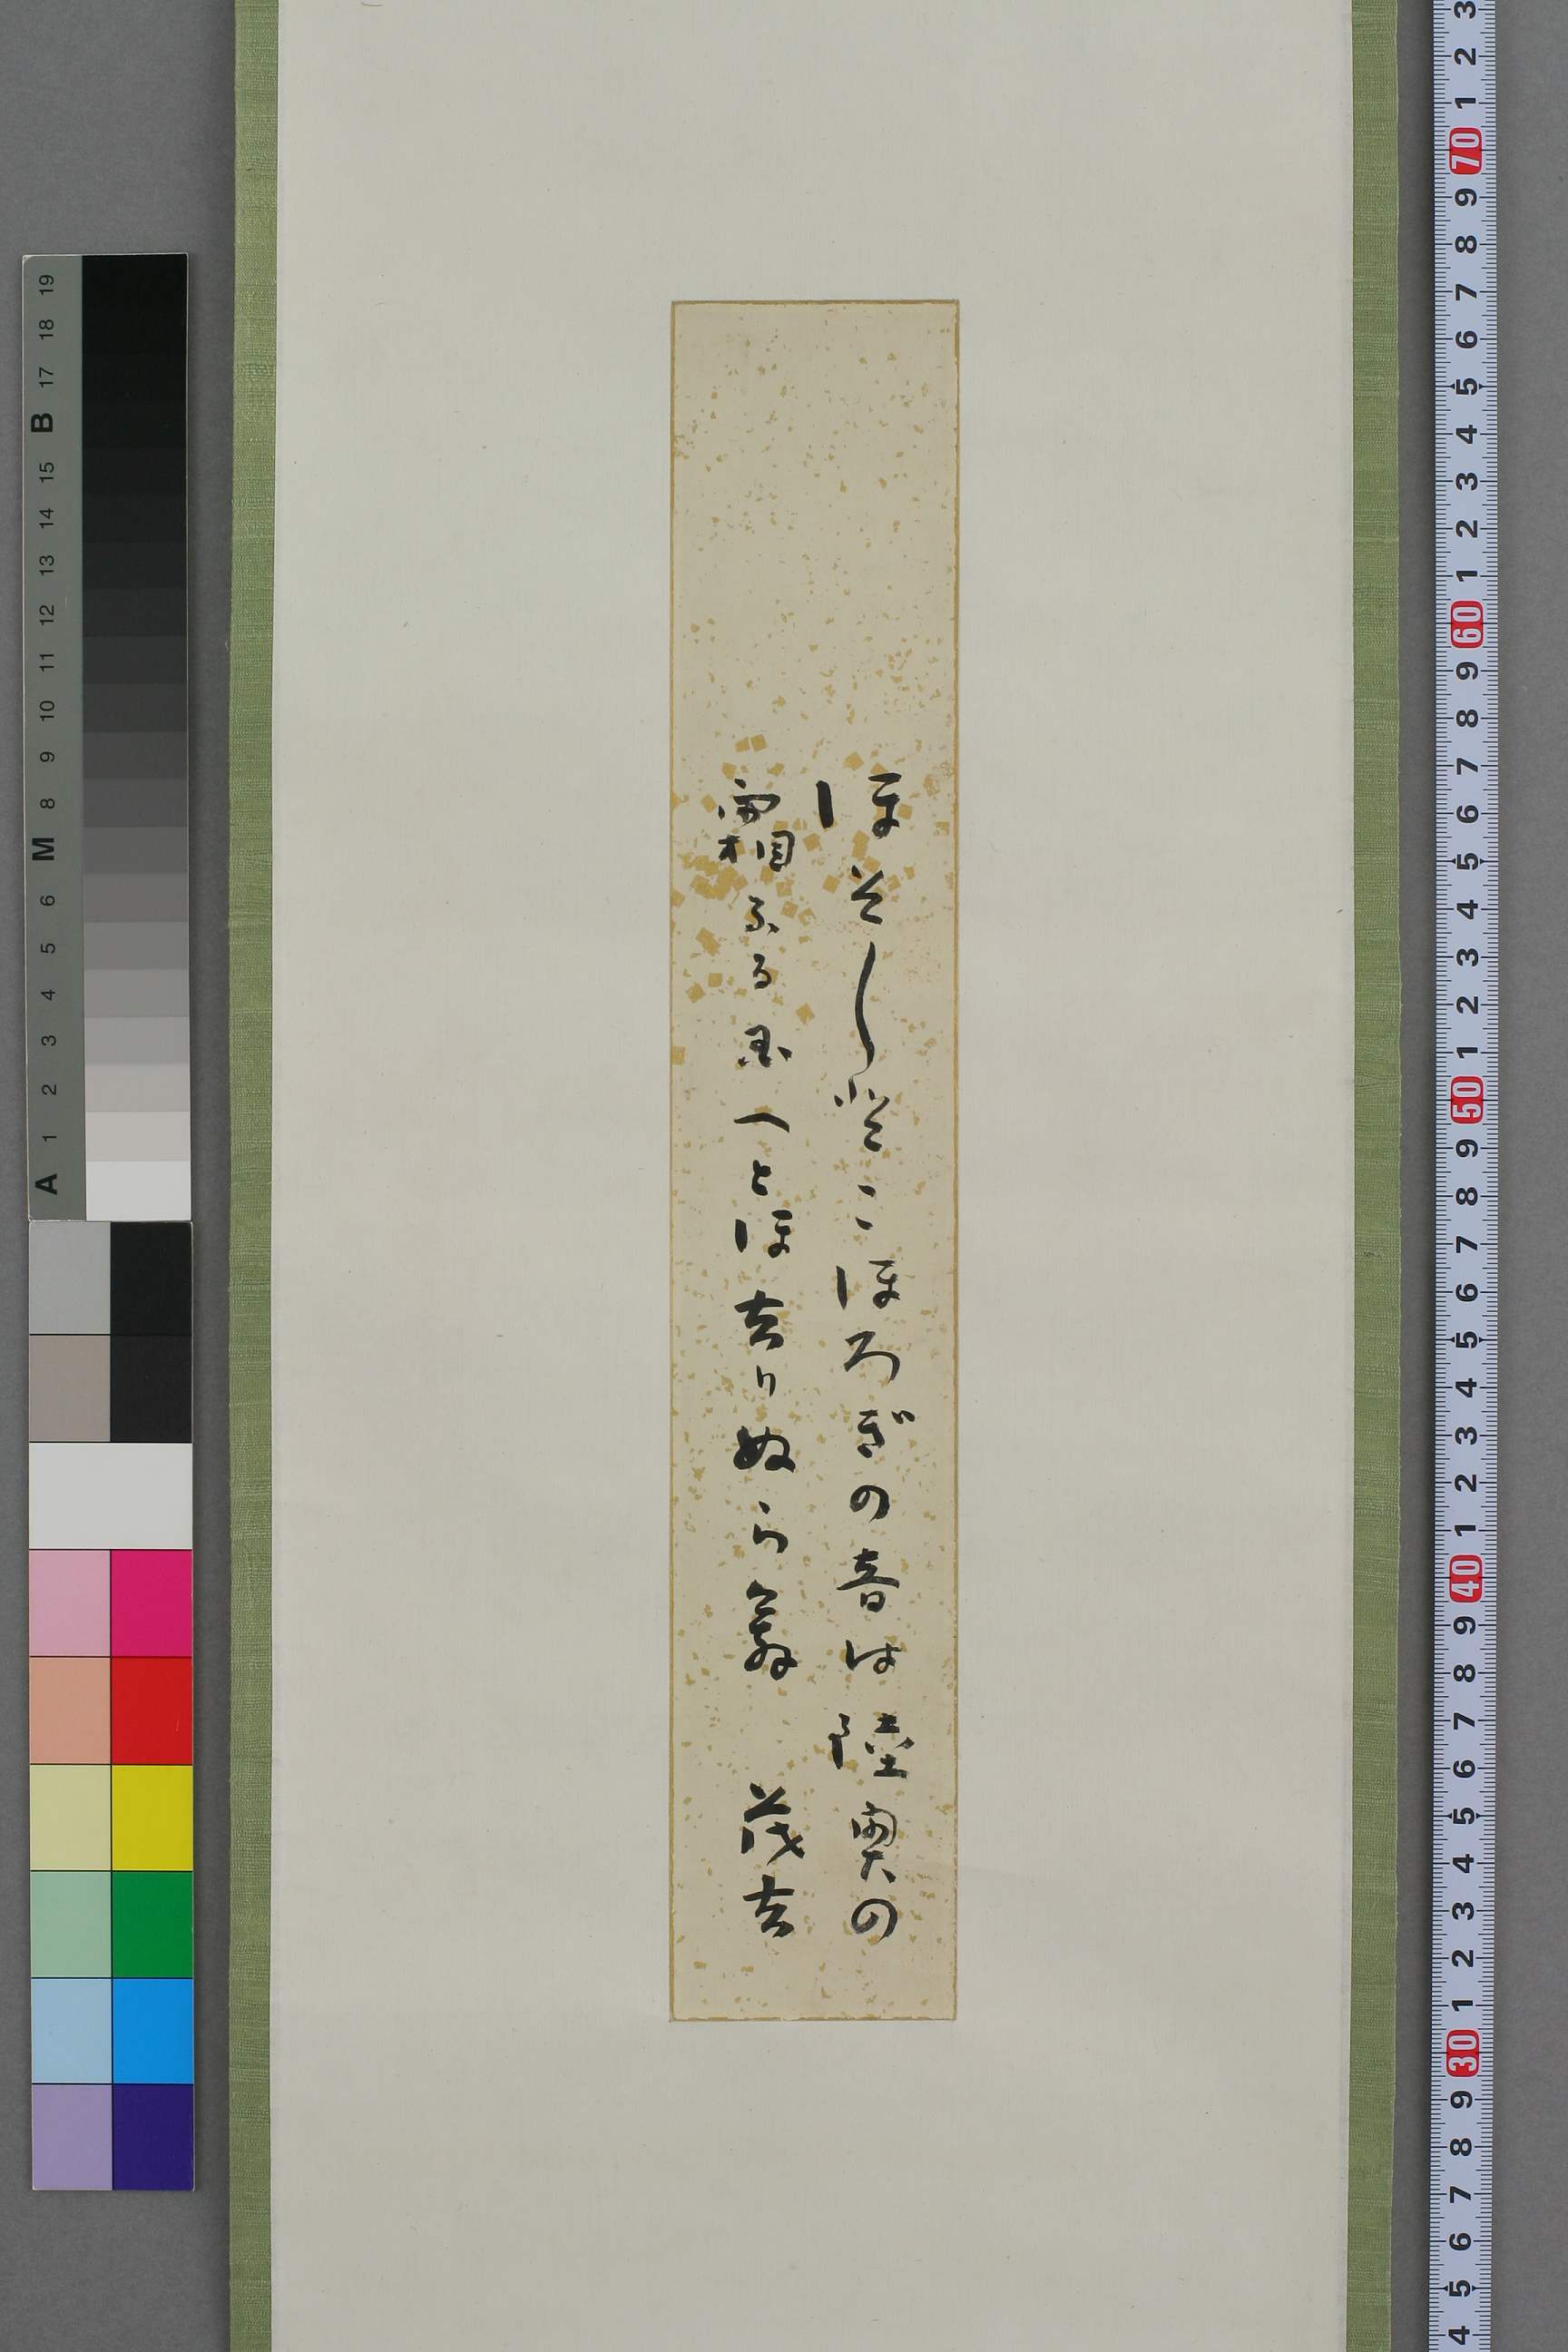 ほそ〱とこほろぎの音は陸奥の
霜ふる国へとほ去りぬらむ 茂吉
A 1 2 3 4 5 6 M 8 9 10 11 12 13 14 15 B 17 18 19
4 5 6 7 8 9 30 1 2 3 4 5 6 7 8 9 40 1 2 3 4 5 6 7 8 9 50 1 2 3 4 5 6 7 8 9 60 1 2 3 4 5 6 7 8 9 70 1 2 3